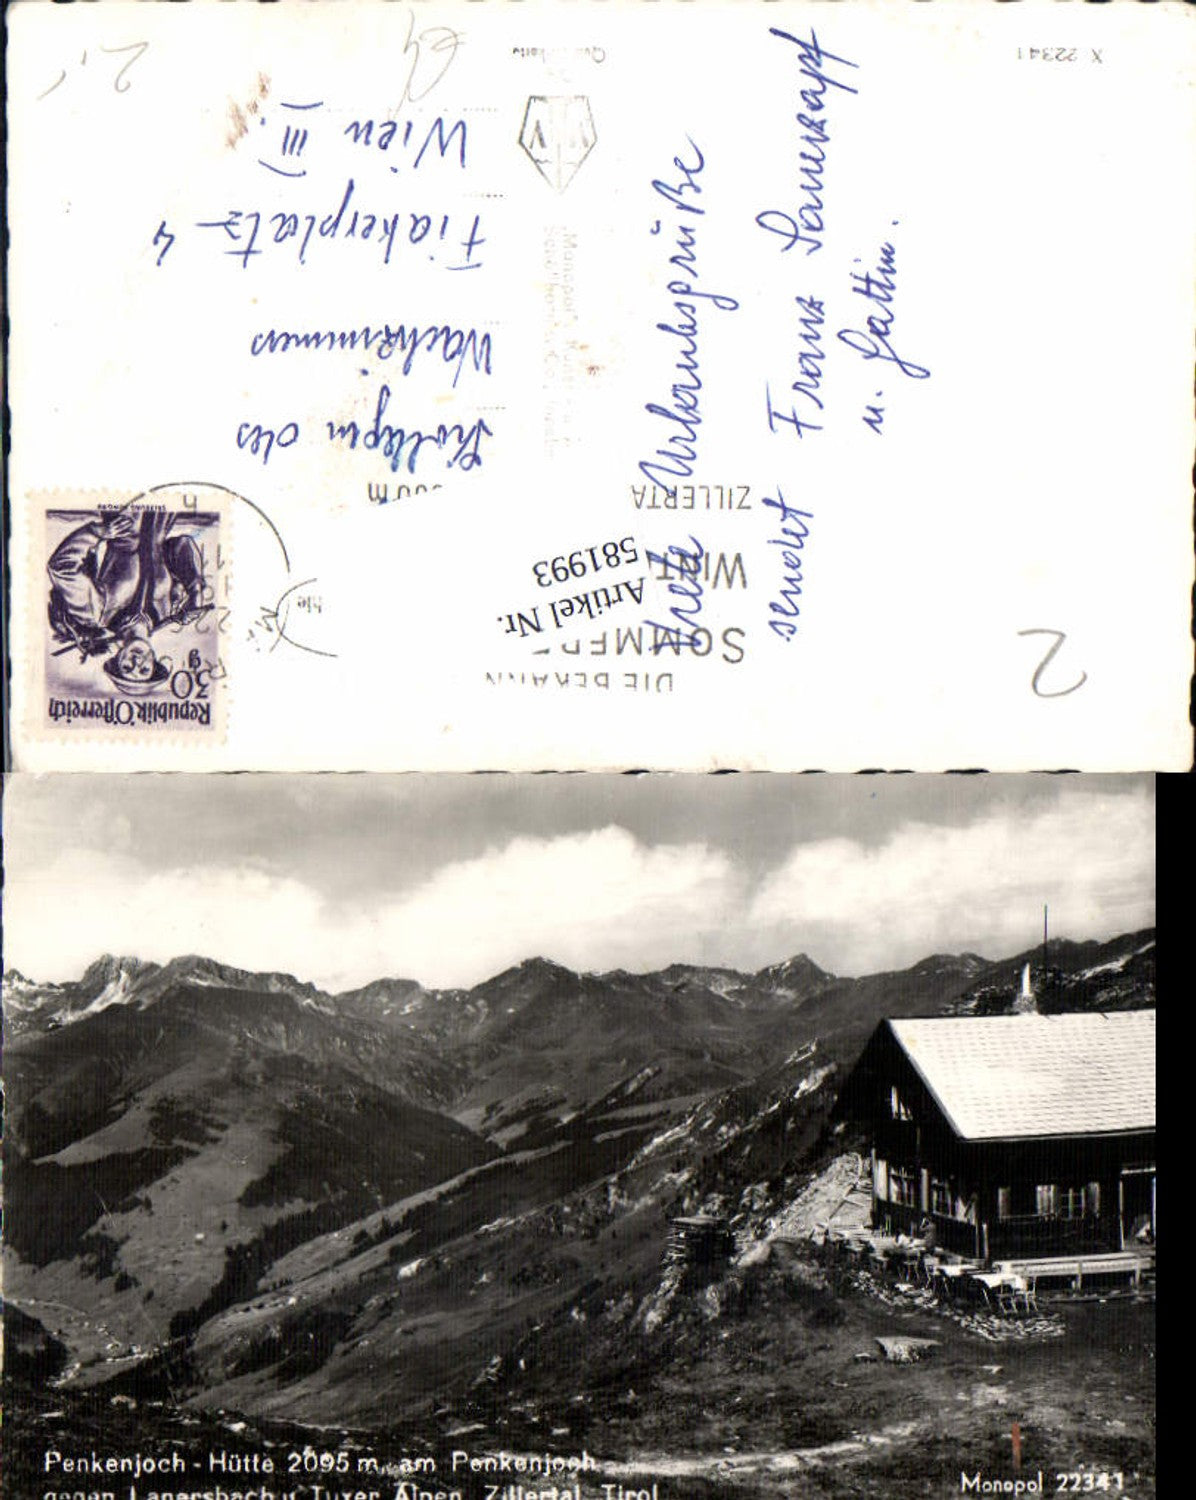 X 22341
Kollegen des
Wachzimmers
Fiakerplatz 4
Wien III.
Urlaubsgrüße
sendet Franz
u. Gattin.
Republik Österreich
30 g
DIE BEKANN
SOMMER
WINT
ZILLERTA
Artikel Nr.
581993
2
Penkenjoch - Hütte 2095 m, am Penkenjoch
gegen Lanersbach u. Tuxer Alpen, Zillertal, Tirol
Monopol 22341